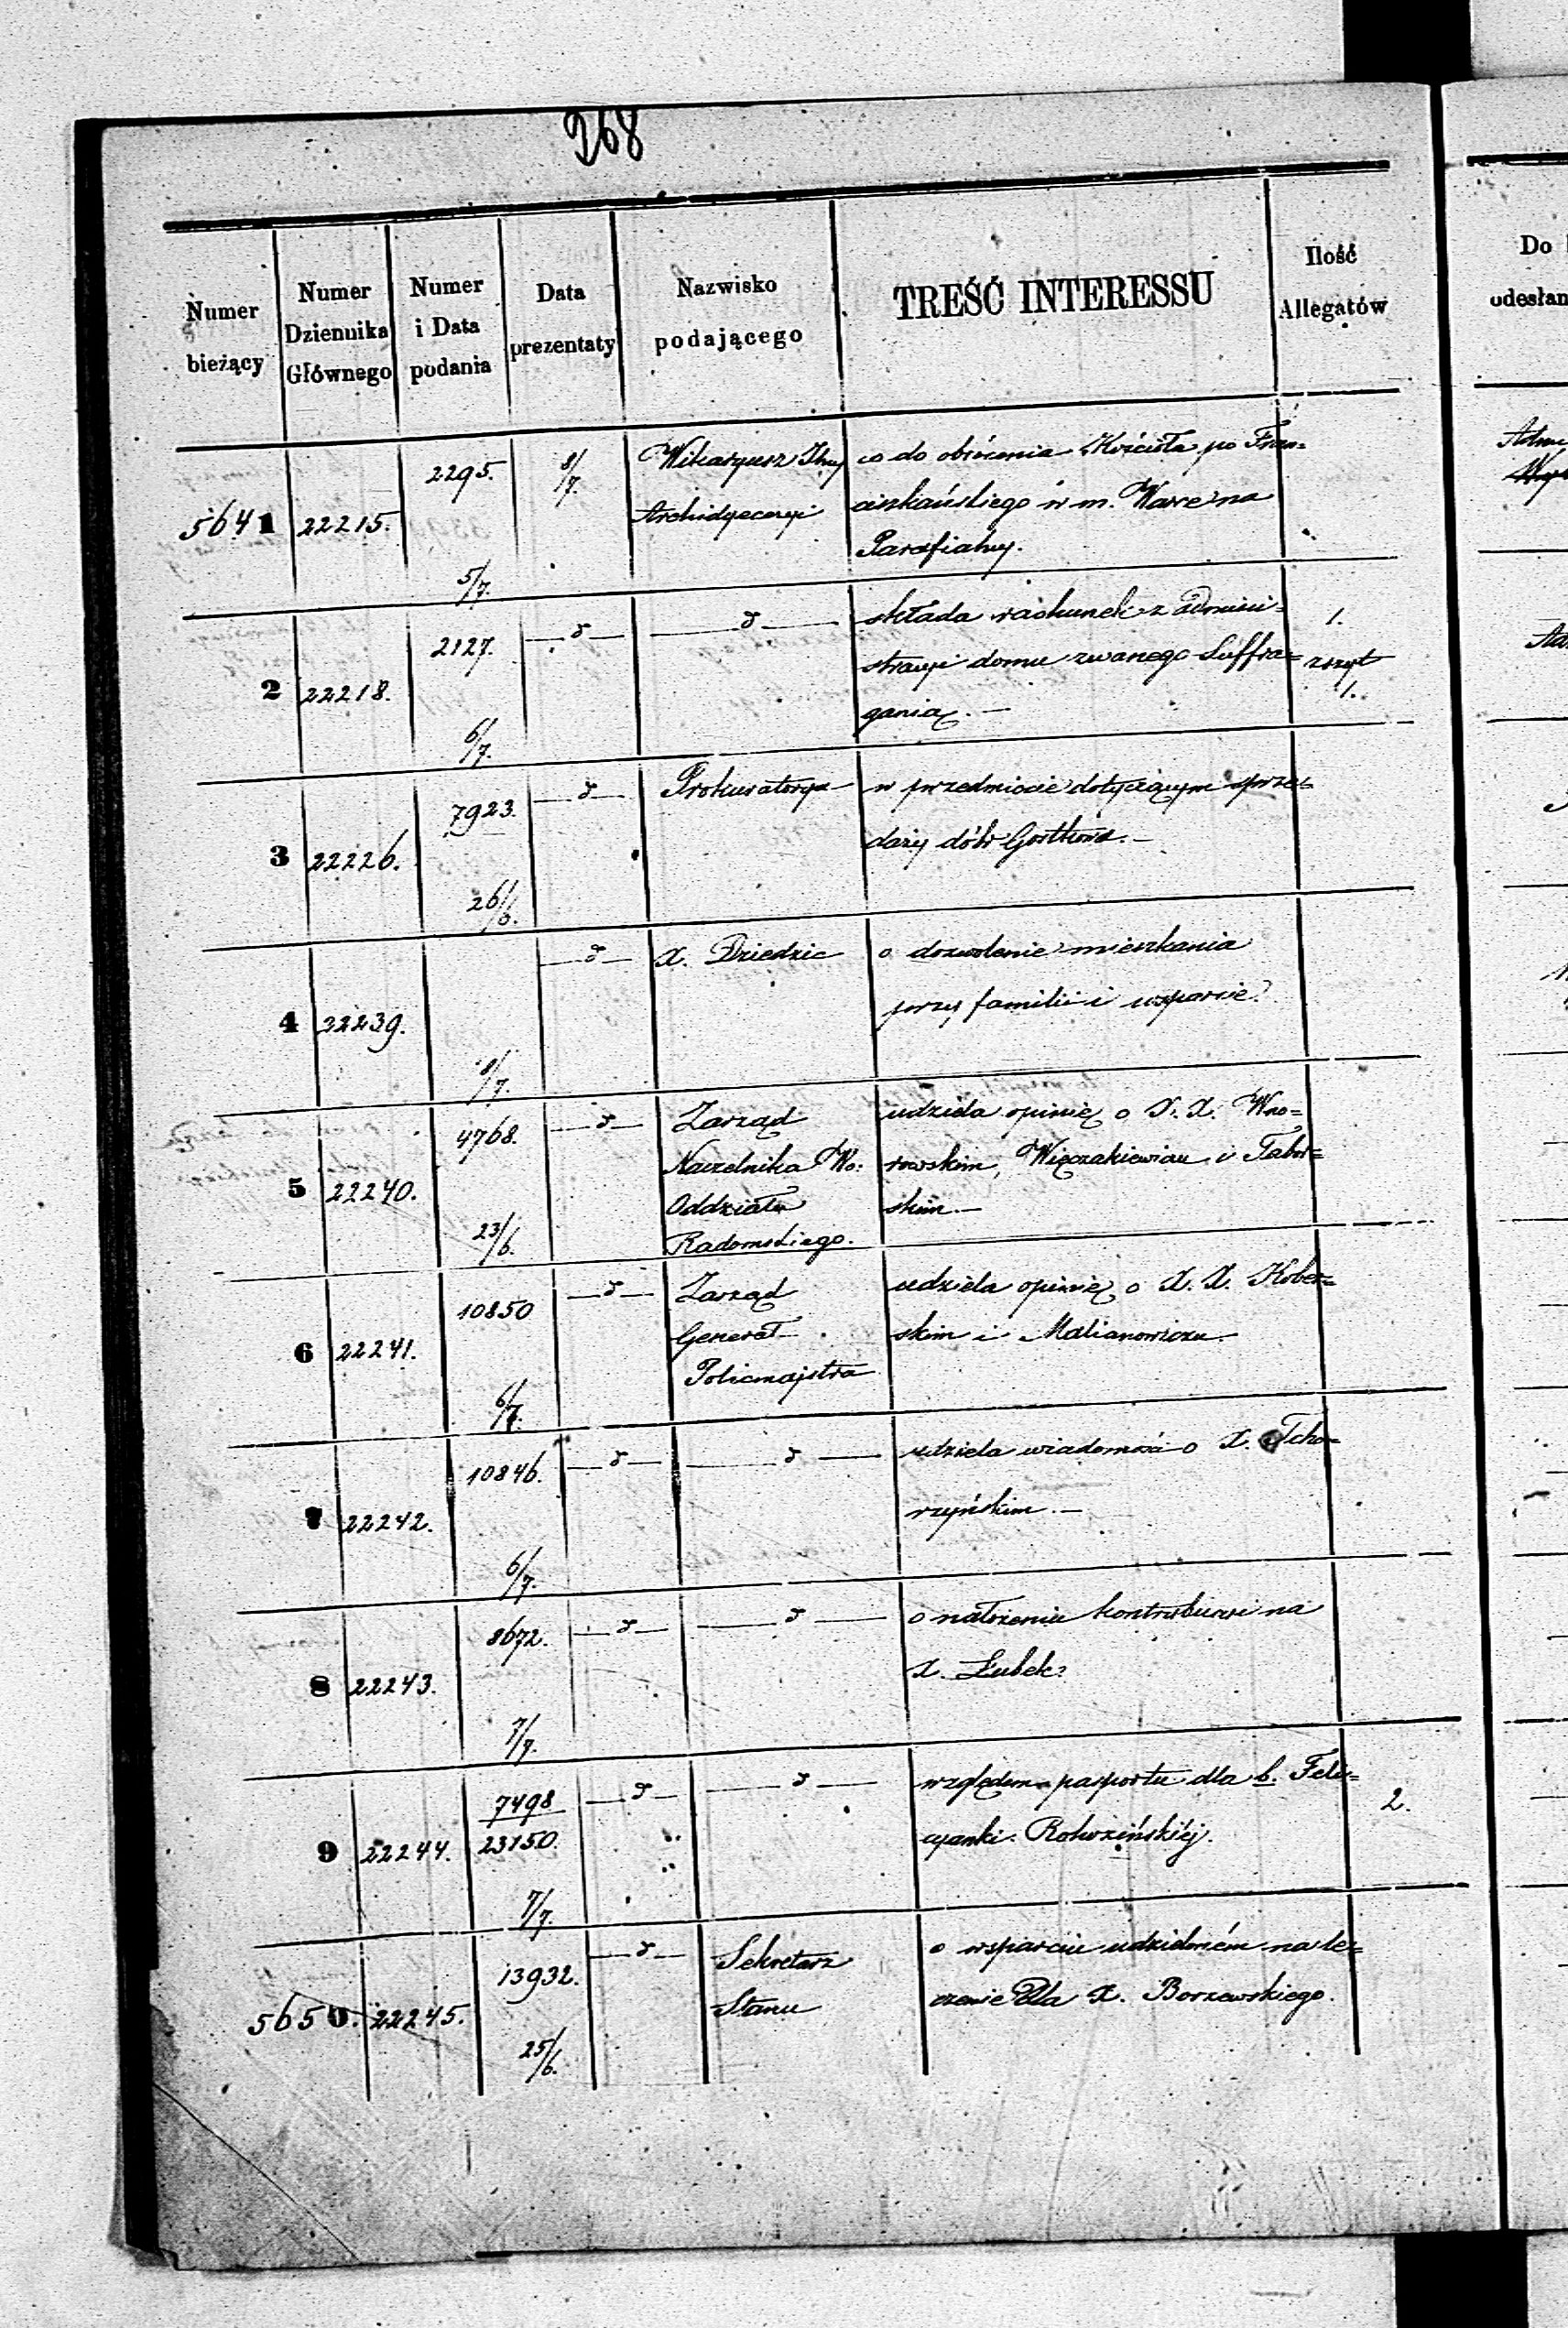 268
Numer bieżący
Numer Dziennika Głównego
Numer i Data podania
Data prezentaty
Nazwisko podającego
TREŚĆ INTERESSU
Ilość Allegatów
Do
odesłan
5641 22215. 2295. 5/7. 8/7. Wikaryusz
Archidyecezyi
co do obrócenia Kościoła po Fran=
ciszkańskiego w m. Warce na
Parafialny.
2 22218. 2127. 6/7. —d— —d—
składa rachunek z admini=
stracyi domu zwanego Suffra=
ganią. —
1.
zszyt
1.
3 22226. 7923. 26/6. —d— Prokuratorya
w przedmiocie dotyczącym sprze=
daży dóbr Gostkowa. —
4 22239. 8/7. —d— X. Dziedzic
o dozwolenie mieszkania
przy familii i wsparcie.
5 22240. 4768. 23/6. —d— Zarząd
Naczelnika Wo:
Oddziału
Radomskiego.
udziela opinię o X. X. Wno=
rowskim, Więczakiewiczu i Tabor=
skim. —
6 22241. 10850 6/7. —d— Zarząd
Generał
Policmajstra
udziela opinię o X. X. Kober=
skim i Malianowiczu. —
7 22242. 10846. 6/7. —d— —d—
udziela wiadomość o X. Tcho=
rzyńskim. —
8 22243. 8672. 7/7. —d— —d—
o nałożeniu kontrybucyi na
X. Łubek.
9 22244. 7498
23150. 7/7. —d— —d—
względem pasportu dla b. Feli=
cyanki Rokozińskiéj.
2.
5650. 22245. 13932. 25/6. —d— Sekretarz
Stanu
o wsparciu udzieloném na le=
czenie dla X. Borzewskiego.